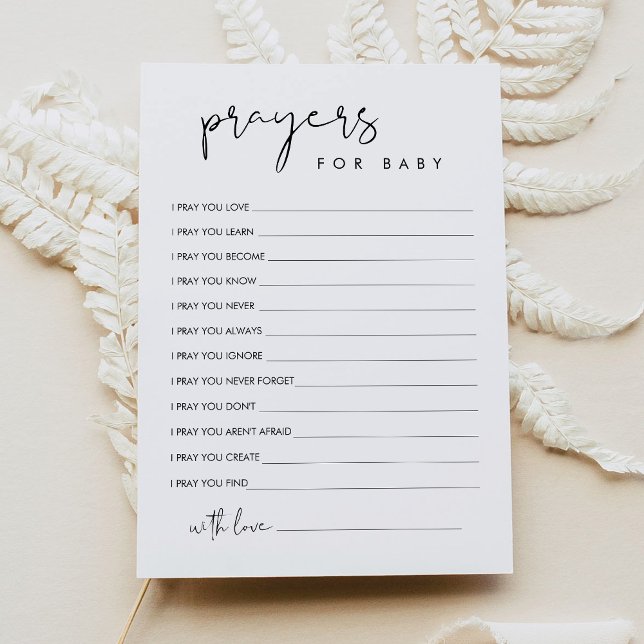 prayers
FOR BABY
I PRAY YOU LOVE
I PRAY YOU LEARN
I PRAY YOU BECOME
I PRAY YOU KNOW
I PRAY YOU NEVER
I PRAY YOU ALWAYS
I PRAY YOU IGNORE
I PRAY YOU NEVER FORGET
I PRAY YOU DON'T
I PRAY YOU AREN'T AFRAID
I PRAY YOU CREATE
I PRAY YOU FIND
with love